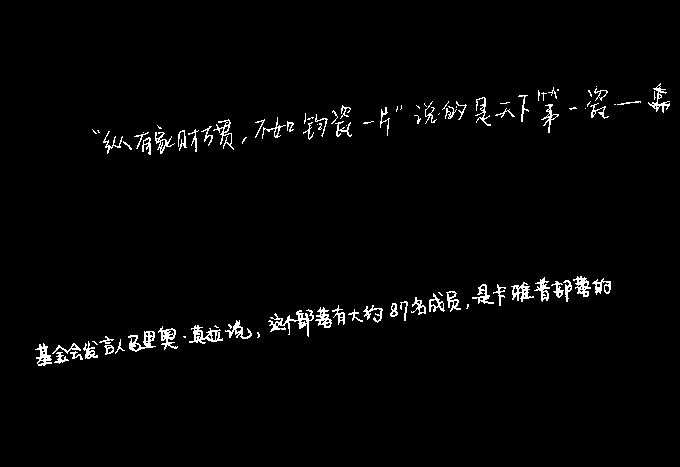 “纵有家财万贯，不如钧瓷一片”说的是天下第一瓷一
基金会发言人马里奥·莫拉说，这个部落有大约87名成员，是卡雅普部落的